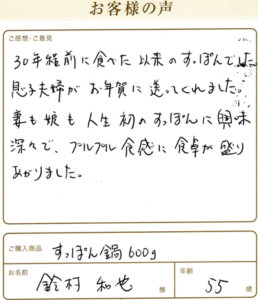 お客様の声
ご感想・ご意見
30年程前に食べた以来のすっぽんでした。
息子夫婦がお年賀に送ってくれました。
妻も娘も人生初のすっぽんに興味
深々で、プルプル食感に食卓が盛り
あがりました。
ご購入商品 すっぽん鍋 600g
お名前 鈴村 和也 様 年齢 55 歳